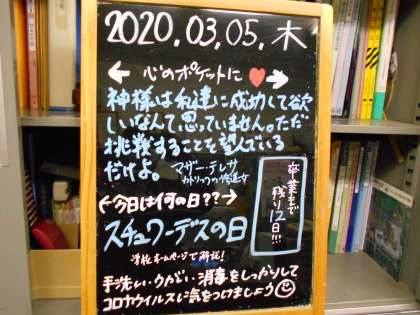 2020.03.05.木
← 心のポケットに ❤→
神様は私達に成功して欲
しいなんて思っていません。ただ
挑戦することを望んでいる
だけよ。 マザー・テレサ
カトリックの修道女
←今日は何の日??→
スチュワーデスの日
学校ホームページで解説!
卒業まで
残り12日!!!
手洗い・うがい・消毒をしっかりして
コロナウイルスに気をつけましょう☺